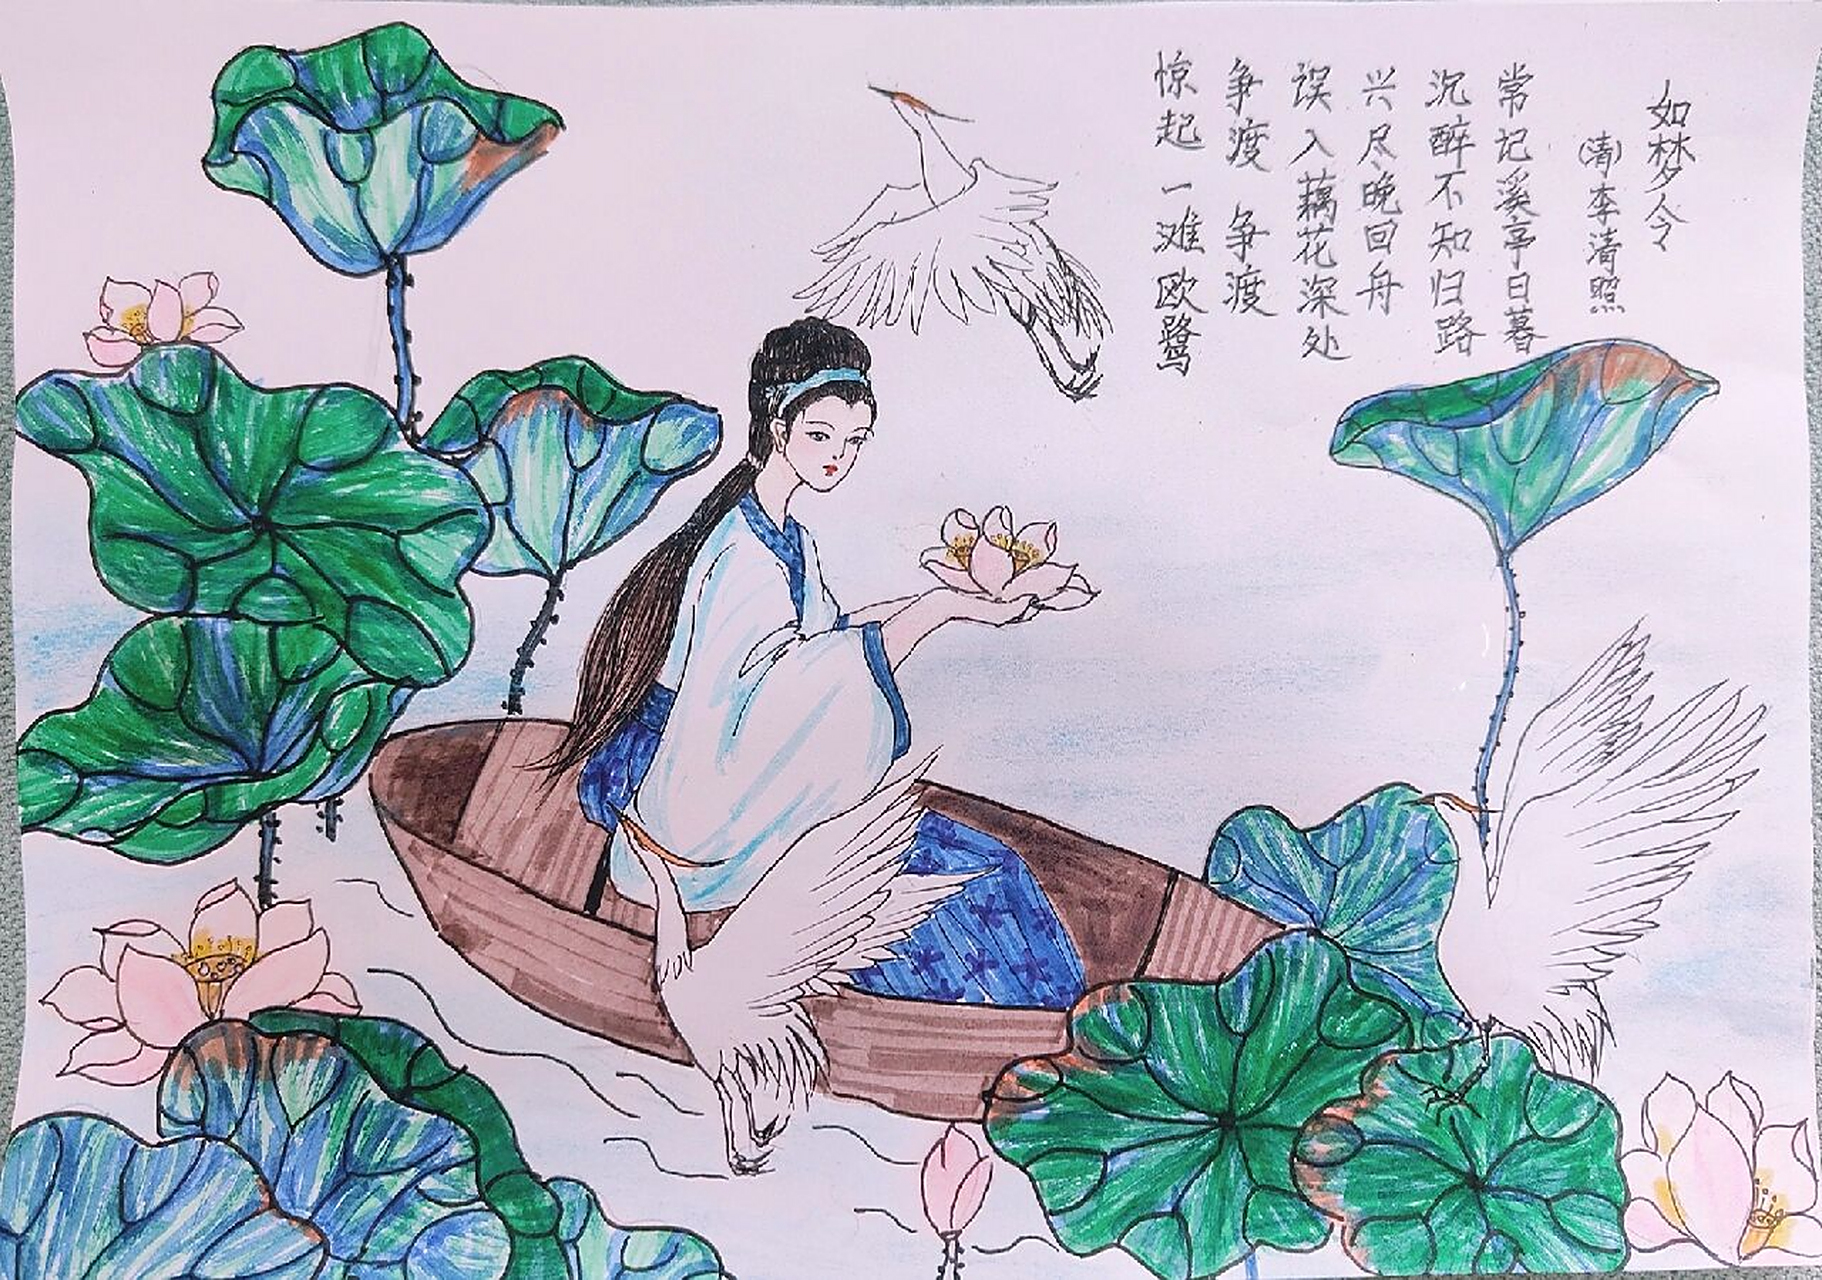 如梦令
(清)李清照
常记溪亭日暮
沉醉不知归路
兴尽晚回舟
误入藕花深处
争渡 争渡
惊起一滩欧鹭